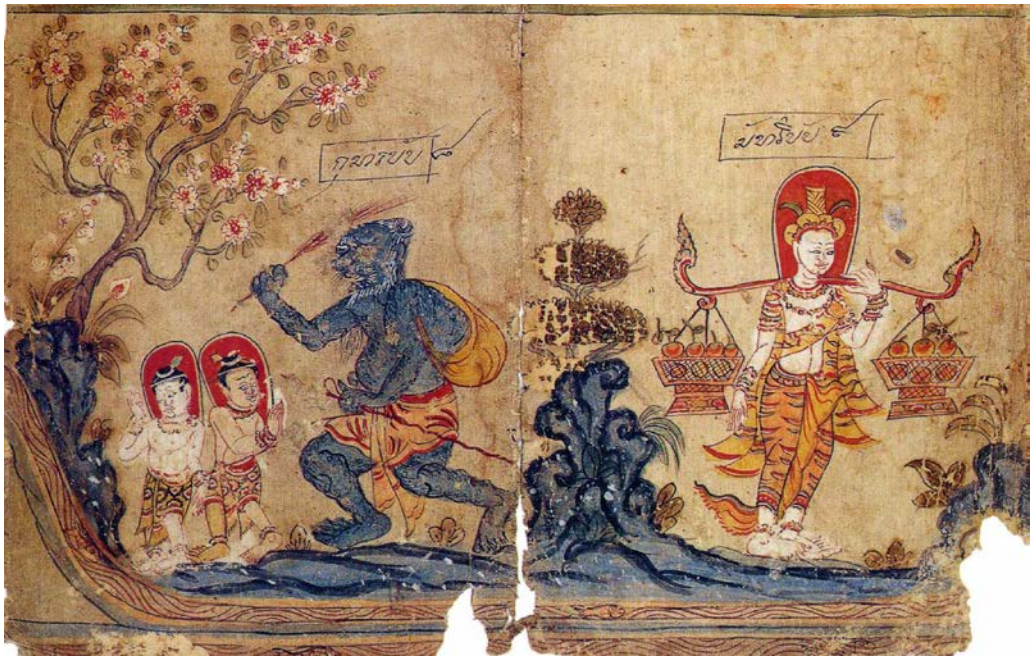 กุมารบับ ๘
มัทรีบับ ๙